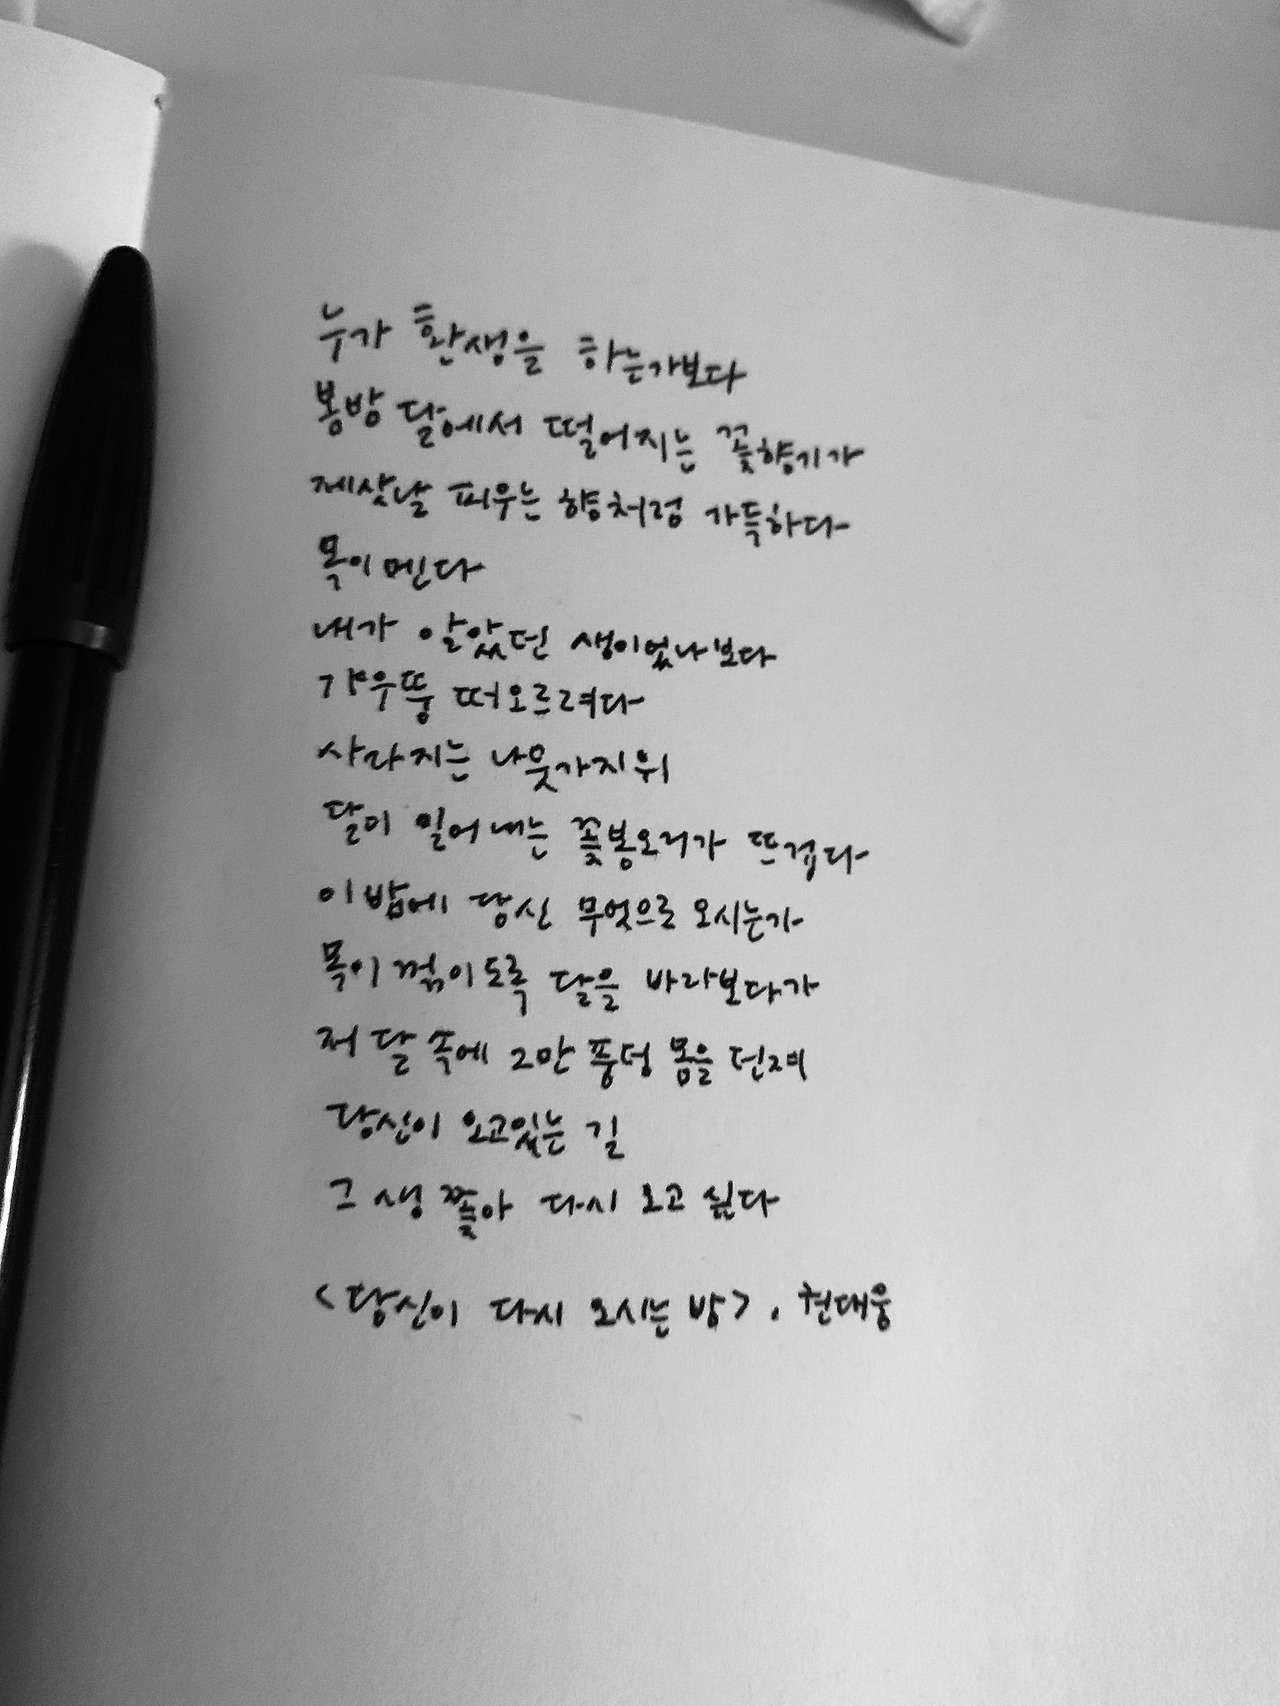 누가 환생을 하는가보다
봉방 달에서 떨어지는 꽃향기가
제삿날 피우는 향처럼 가득하다
목이 멘다
내가 알았던 생이었나보다
갸우뚱 떠오르려다
사라지는 나뭇가지 위
달이 밀어내는 꽃봉오리가 뜨겁다
이 밤에 당신 무엇으로 오시는가
목이 꺾이도록 달을 바라보다가
저 달 속에 그만 풍덩 몸을 던져
당신이 오고있는 길
그 생 쫓아 다시 오고 싶다
<당신이 다시 오시는 밤>, 권대웅